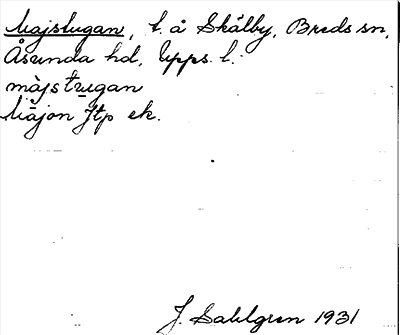 Majstugan, t. å Skälby, Breds sn,
Åsunda hd, Upps. l.
màjstu̱gan
Majon Jtp ek.
J. Sahlgren 1931